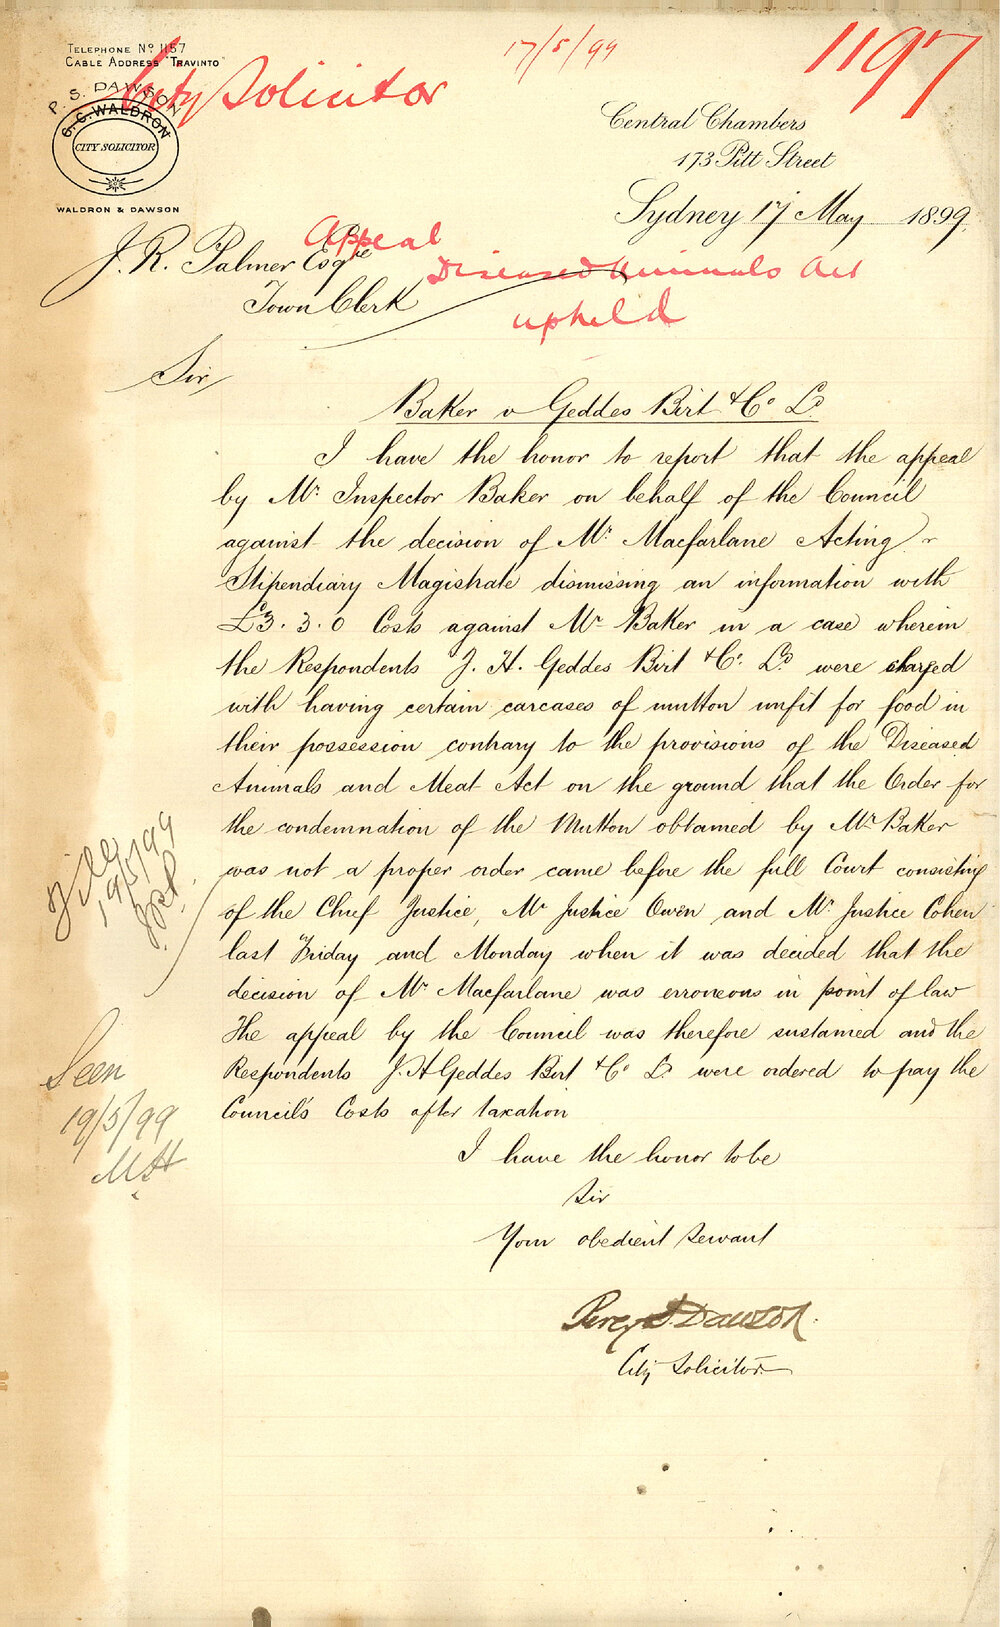 TELEPHONE No 1157
CABLE ADDRESS "TRAVINTO"
P. S. DAWSON
G. C. WALDRON
CITY SOLICITOR
WALDRON & DAWSON
City Solicitor
17/5/99
1197
Central Chambers
173 Pitt Street
Sydney 17 May 1899
J. R. Palmer Esqre
Town Clerk
Appeal
Diseased Animals Act
upheld
Sir
Baker v Geddes Birt & Co Ld
I have the honor to report that the appeal
by Mr Inspector Baker on behalf of the Council
against the decision of Mr Macfarlane Acting
Stipendiary Magistrate dismissing an information with
£3. 3. 0 Costs against Mr Baker in a case wherein
the Respondents J. H. Geddes Birt & Co. Ld were charged
with having certain carcases of mutton unfit for food in
their possession contrary to the provisions of the Diseased
Animals and Meat Act on the ground that the Order for
the condemnation of the Mutton obtained by Mr Baker
was not a proper order came before the full Court consisting
of the Chief Justice, Mr Justice Owen and Mr Justice Cohen
last Friday and Monday when it was decided that the
decision of Mr Macfarlane was erroneous in point of law
The appeal by the Council was therefore sustained and the
Respondents J. H Geddes Birt & Co Ld. were ordered to pay the
Council's Costs after taxation
I have the honor to be
Sir
Your obedient servant
Percy S Dawson.
City Solicitor
19/5/99
Seen
19/5/99